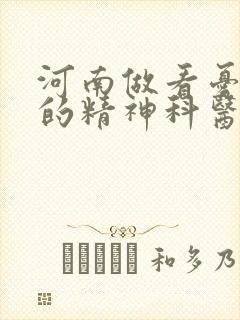 河南做看憂
的精神科醫
和多乃